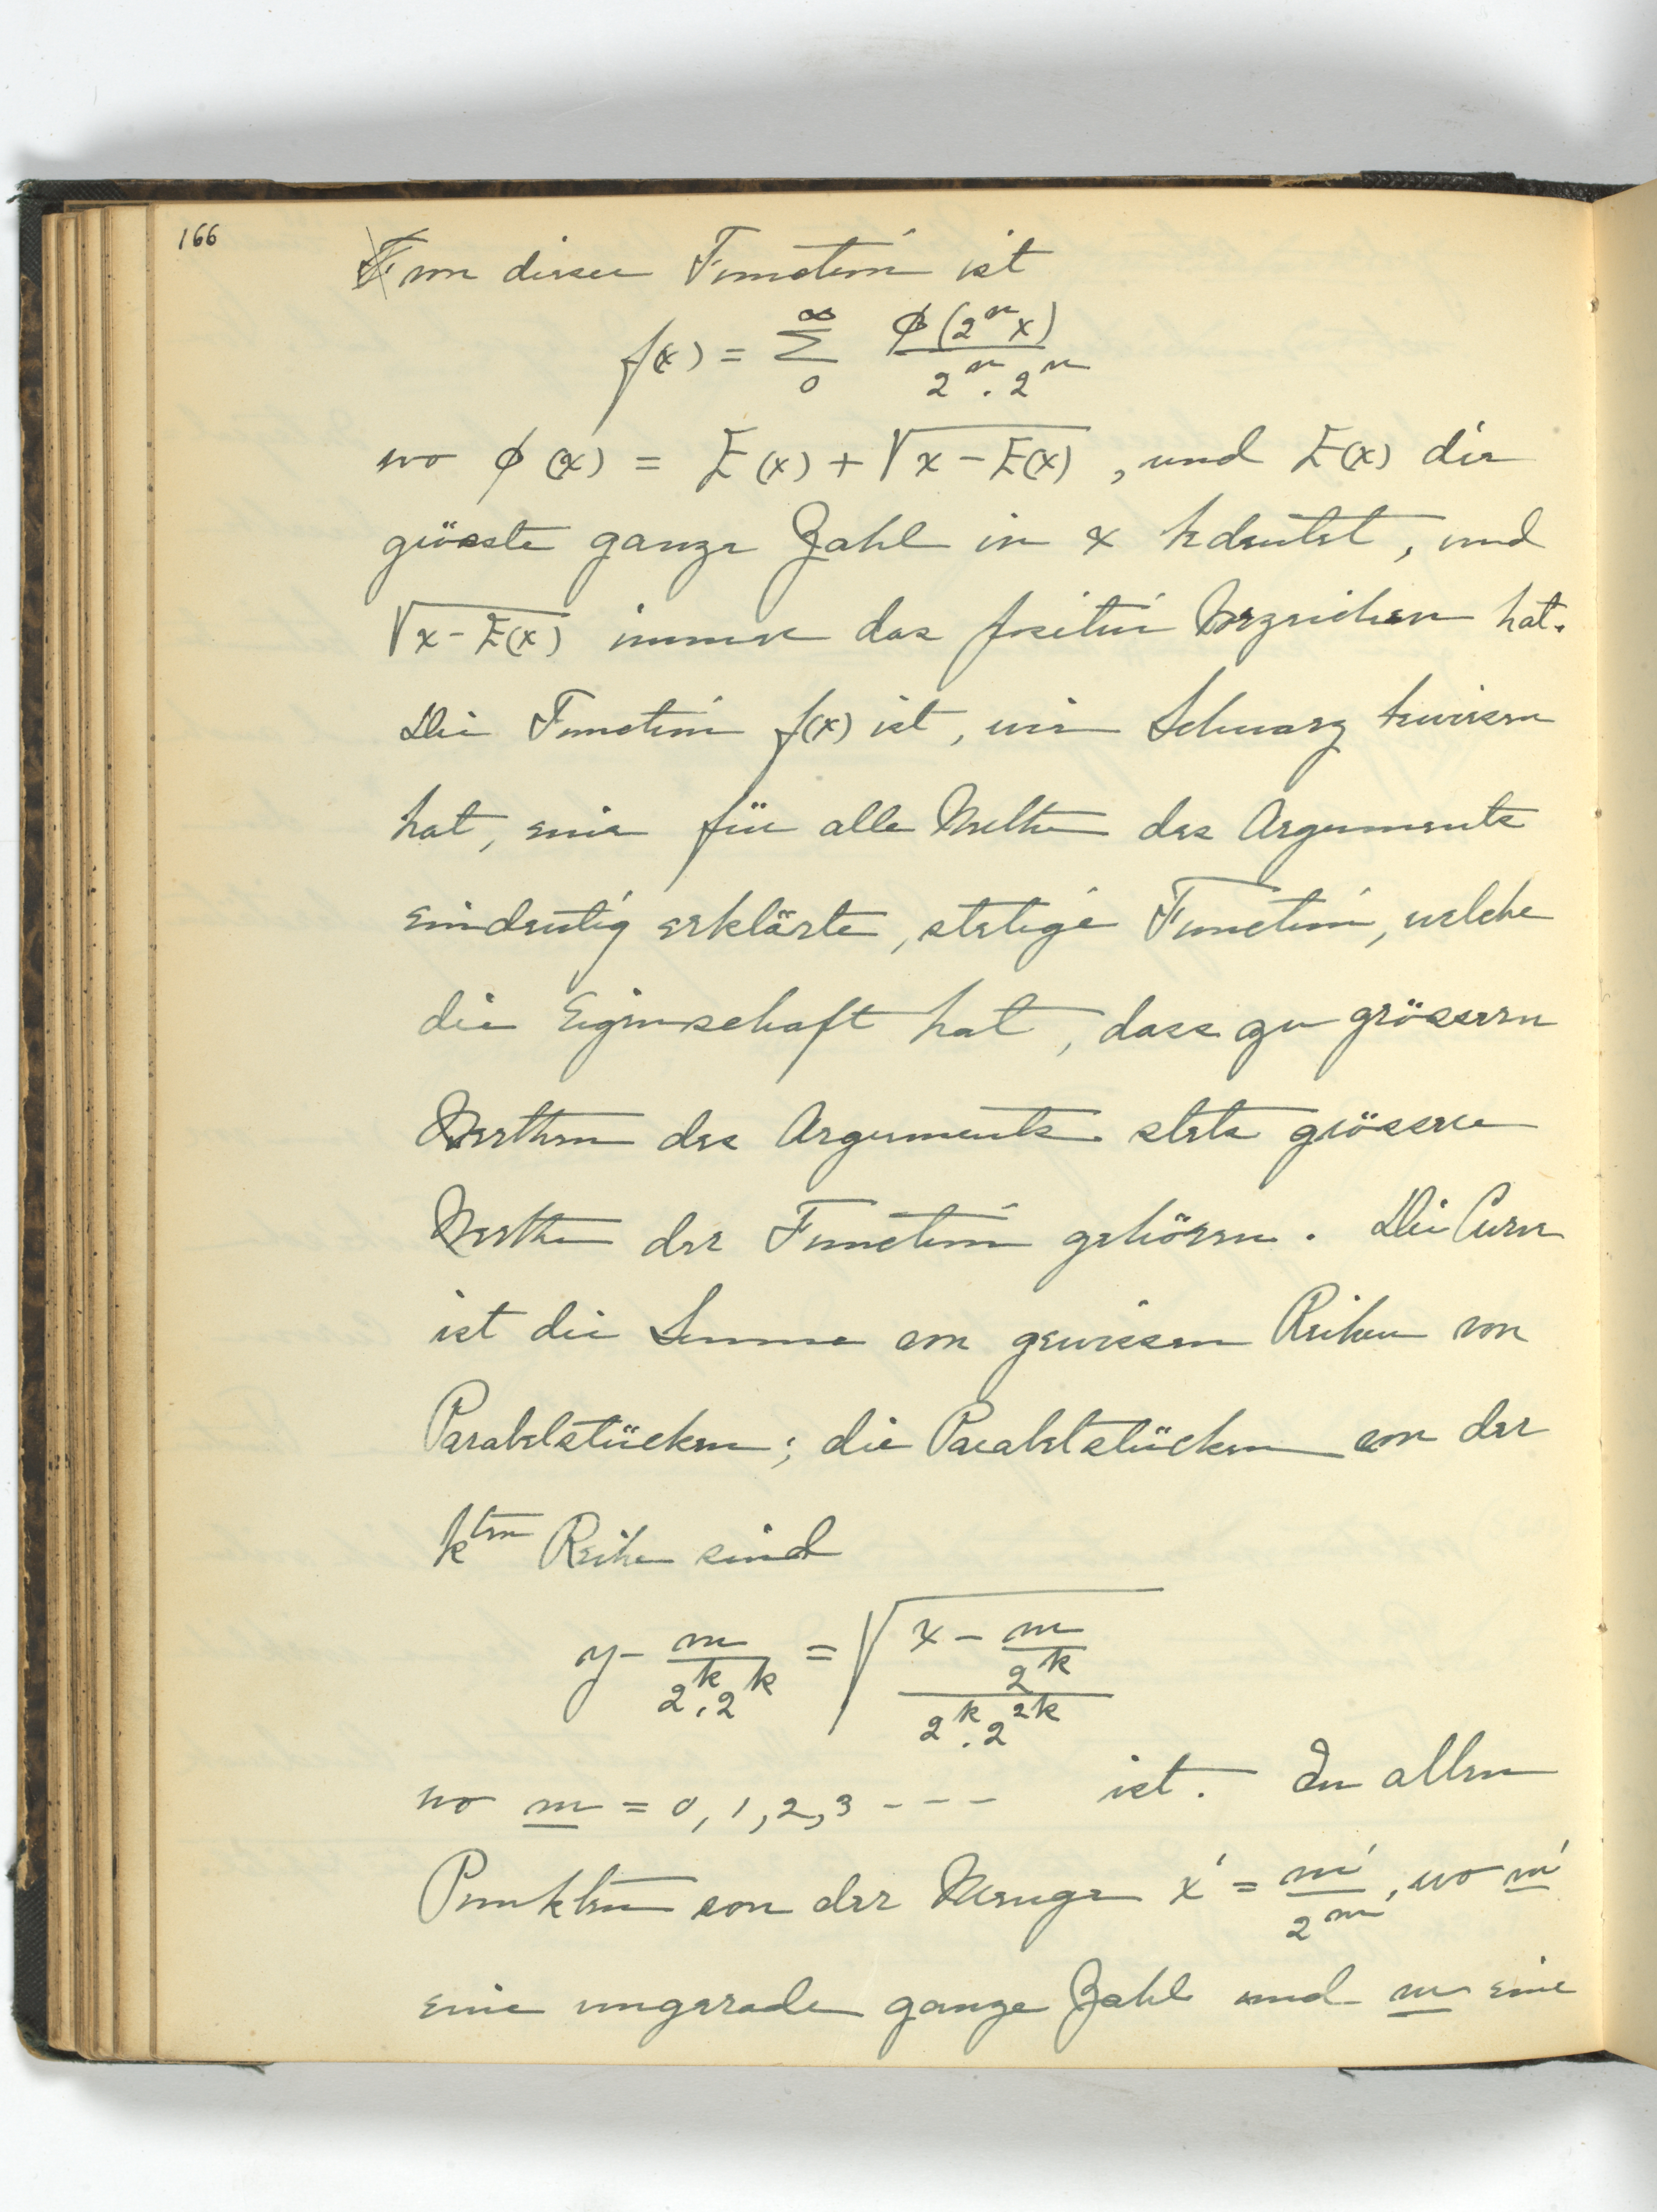 166
von dieser Function ist
f(x) = ∞ Σ 0 ϕ(2ⁿx) / 2ⁿ.2ⁿ
wo ϕ(x) = E(x) + √(x − E(x)), und E(x) die
grösste ganze Zahl in x bedeutet, und
√(x − E(x)) immer das positive Vorzeichen hat.
Die Function f(x) ist, wie Schwarz bewiesen
hat, eine für alle Welthe des Arguments
eindeutig erklärte, stetige Function, welche
die Eigenschaft hat, dass zu grösseren
Werthen des Arguments stets grössere
Werthe der Function gehören. Die Curve
ist die Summe von gewissen Reihen von
Parabelstücken; die Parabelstücken von der
k^ten Reihe sind
y − m / 2ᵏ.2ᵏ = √((x − m / 2ᵏ) / 2ᵏ.2²ᵏ)
wo m = 0, 1, 2, 3 - - - ist. In allen
Punkten von der Menge x' = m' / 2ᵐ, wo m'
eine ungerade ganze Zahl und m eine